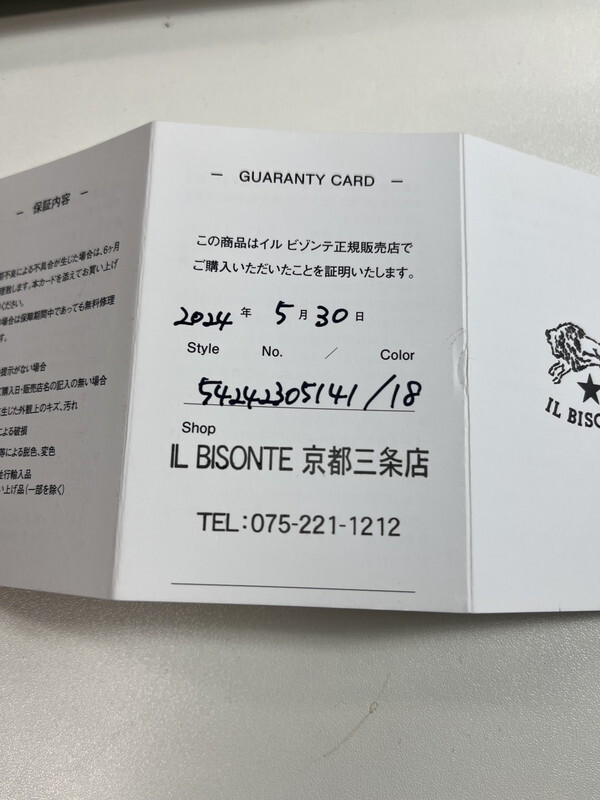 — 保証内容 —
不良による不具合が生じた場合は、6ヶ月
致します。本カードを添えてお買い上げ
ください。
場合は保障期間中であっても無料修理
す。
提示がない場合
購入日・販売店名の記入の無い場合
生じた外観上のキズ、汚れ
による破損
等による脱色、変色
並行輸入品
い上げ品(一部を除く)
— GUARANTY CARD —
この商品はイル ビゾンテ正規販売店で
ご購入いただいたことを証明いたします。
2024 年 5 月 30 日
Style No. / Color
54242305141 / 18
Shop
IL BISONTE 京都三条店
TEL:075-221-1212
IL BISO